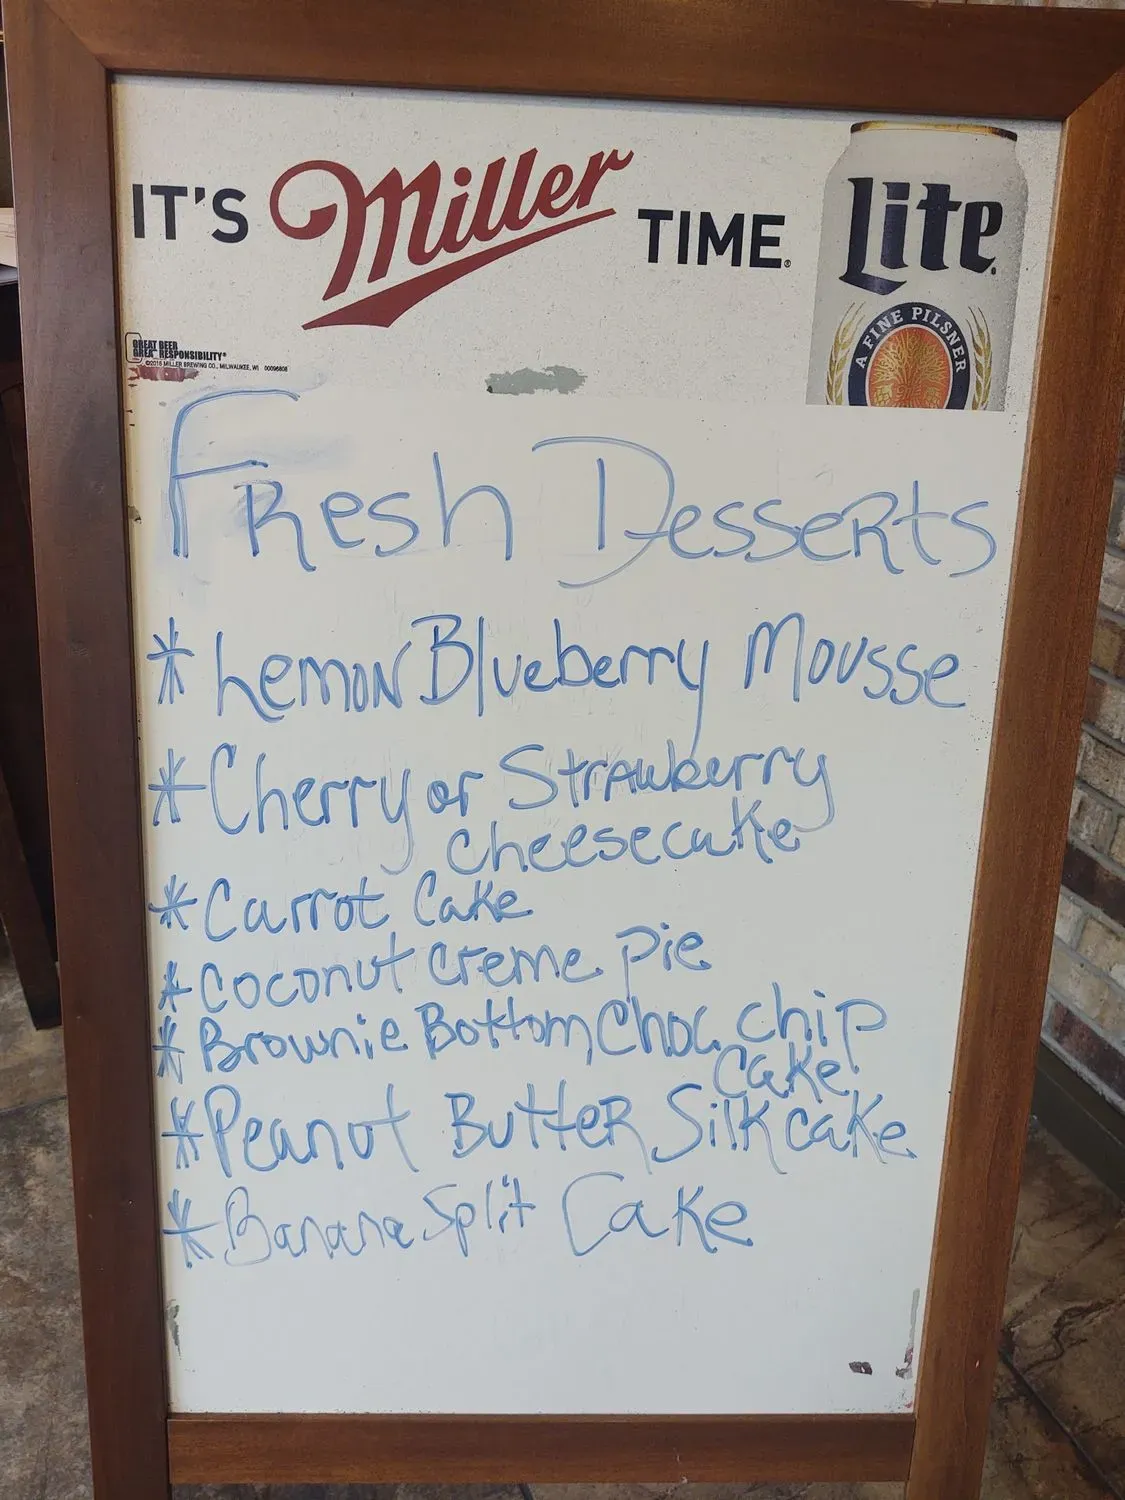 IT'S Miller TIME.®
Lite
A FINE PILSNER
GREAT BEER
GREAT RESPONSIBILITY®
©2016 MILLER BREWING CO., MILWAUKEE, WI
Fresh Desserts
* Lemon Blueberry Mousse
* Cherry or Strawberry
cheesecake
* Carrot Cake
* Coconut Creme pie
* Brownie Bottom Choc. chip
Cake
* Peanut Butter Silk cake
* Banana Split Cake